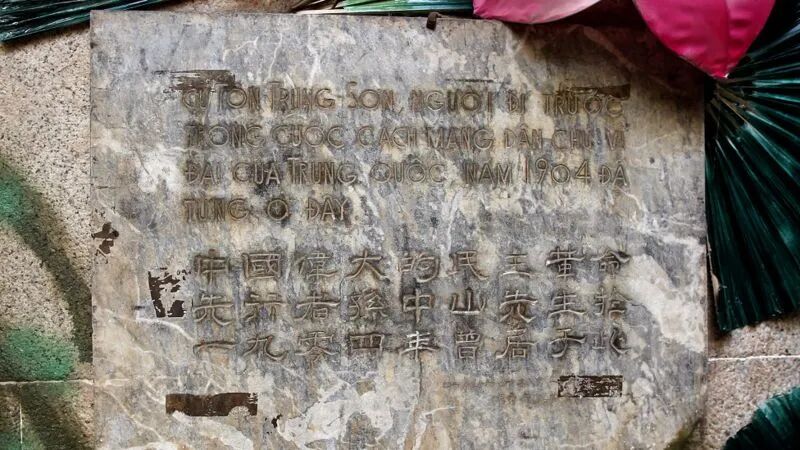 CỤ TÔN TRUNG SƠN, NGƯỜI ĐI TRƯỚC
TRONG CUỘC CÁCH MẠNG DÂN CHỦ VĨ
ĐẠI CỦA TRUNG QUỐC, NĂM 1904 ĐÃ
TỪNG Ở ĐÂY
中國偉大的民主革命
先行者孫中山先生在
一九零四年曾居于此